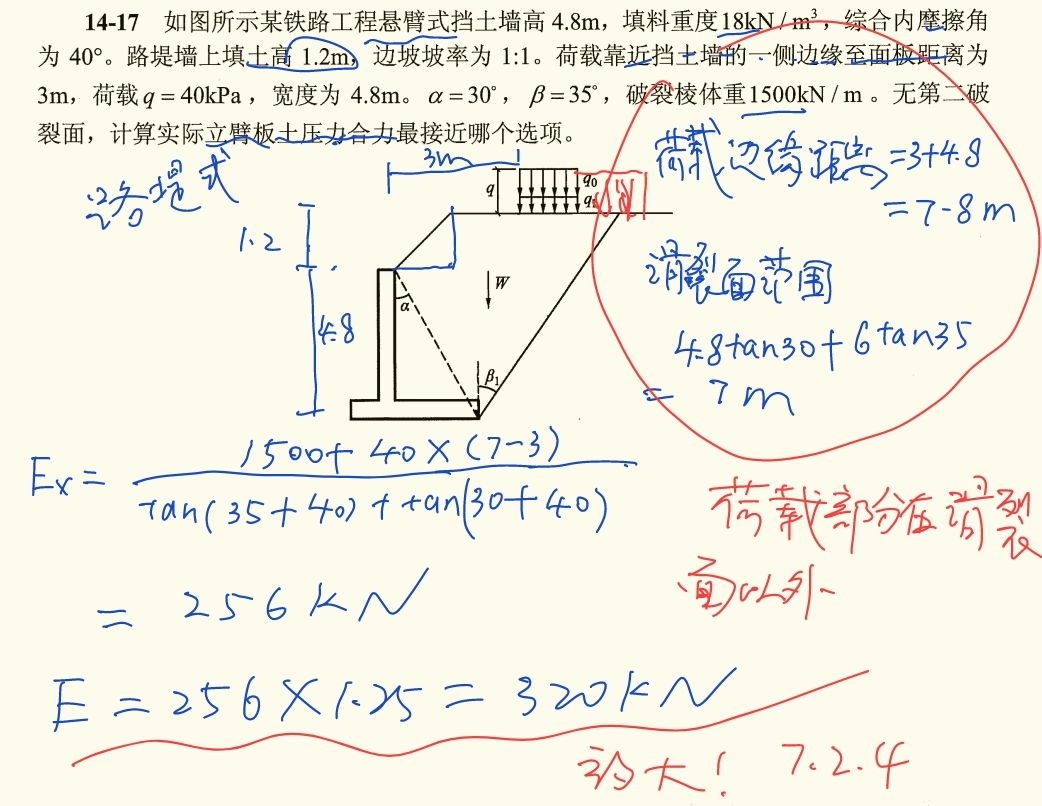 14-17 如图所示某铁路工程悬臂式挡土墙高 4.8m，填料重度18kN / m³，综合内摩擦角
为 40°。路堤墙上填土高 1.2m，边坡坡率为 1:1。荷载靠近挡土墙的一侧边缘至面板距离为
3m，荷载 q = 40kPa，宽度为 4.8m。α = 30°，β = 35°，破裂棱体重1500kN / m 。无第二破
裂面，计算实际立臂板土压力合力最接近哪个选项。
路堤式
3m
q
q₀
1.2
W
α
4.8
β₁
荷载边缘距离=3+4.8
=7-8m
滑裂面范围
4.8tan30+6tan35
= 7m
Ex= 1500+ 40×(7-3)
tan(35+40)+tan(30+40)
= 256KN
荷载部分在滑裂
面以外
E = 256×1.25 = 320KN
放大! 7.2.4